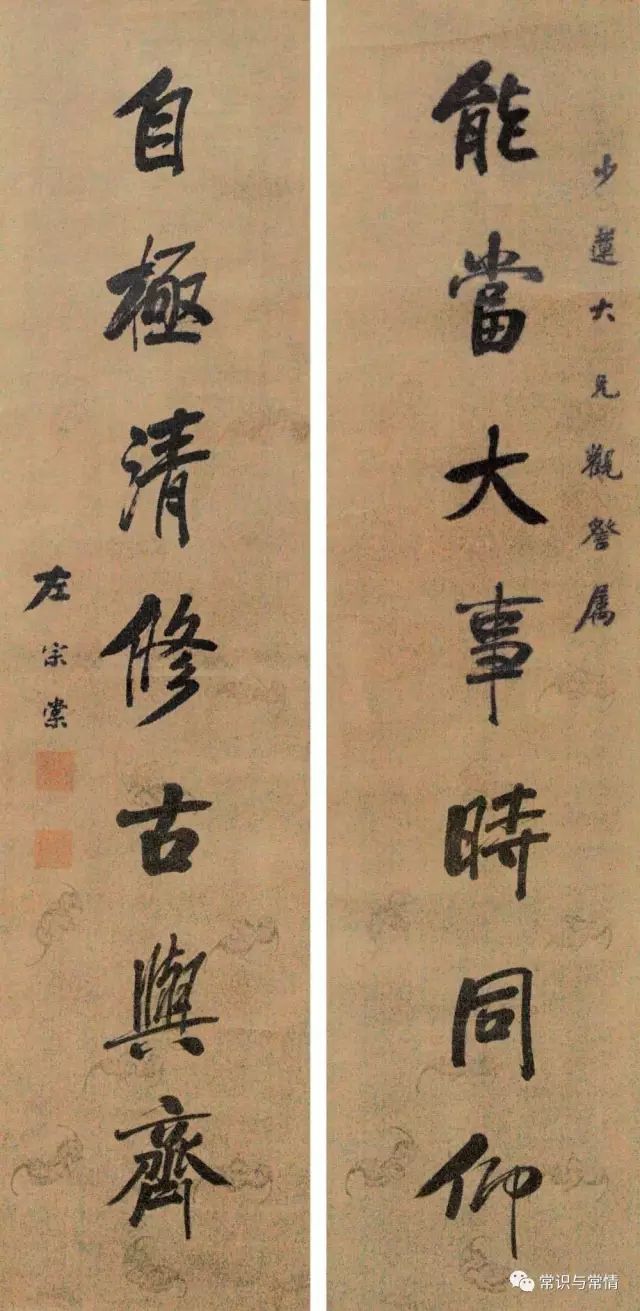 少蓮大兄觀詧属
能當大事時同仰
自極清修古與齊
左宗棠
常识与常情